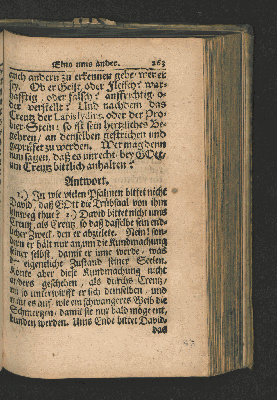 Eins ums ander. 263
auch andern zu erkennen gebe, wer er
sey. Ob er Geist, oder Fleisch? war-
hafftig, oder falsch? aufrichtig, o-
der verstellt? Und nachdem das
Creutz der Lapislydius, oder der Pro-
bier-Stein; so ist sein hertzliches Be-
gehren, an denselben gestrichen und
geprüfet zu werden. Wer mag denn
nun sagen, daß es unrecht, bey GOtt,
um Creutz bittlich anhalten?
Antwort.
1.) In wie vielen Psalmen bittet nicht
David, daß GOtt die Trübsaal von ihm
hinweg thue? 2.) David bittet nicht ums
Creutz, als Creutz, so daß dasselbe sein end-
licher Zweck, den er abzielete. Nein! son-
dern er hält nur an, um die Kundmachung
seiner selbst, damit er inne werde, was
der eigentliche Zustand seiner Seelen.
Könte aber diese Kundmachung nicht
anders geschehen, als durchs Creutz,
so unterwirfft er sich demselben, und
es auf, wie ein schwangeres Weib die
Schmertzen, damit sie nur bald möge ent-
bunden werden. Ums Ende bittet David,
das